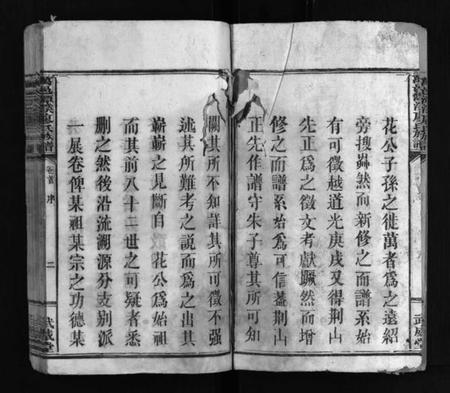 花公子孫之徙萬者爲之遠紹
旁搜犂然而新修之而譜系始
有可徵越道光庚戌又得荆山
先正爲之徵文考獻厥然而增
修之而譜系始爲可信蓋荆山
正先作譜守朱子尊其所可知
闕其所不知詳其所可徵不强
述其所難考之説而爲之出其
嶄嶄之見斷自 花公爲始祖
而其前八十二世之可疑者悉
删之然後沿流溯源分支别派
一展卷俾某祖某宗之功德某
卷首 序
二
武威堂
武威堂